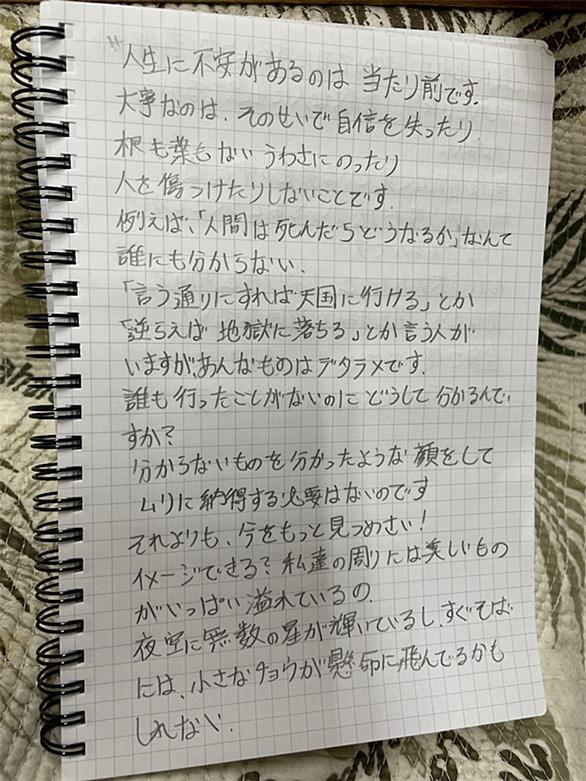 "人生に不安があるのは 当たり前です.
大事なのは、そのせいで自信を失ったり
根も葉もないうわさにのったり
人を傷つけたりしないことです.
例えば、「人間は死んだらどうなるか」なんて
誰にも分からない.
「言う通りにすれば天国に行ける」とか
「逆らえば 地獄に落ちる」とか言う人が
いますが、あんなものはデタラメです.
誰も行ったことがないのに どうして 分かるんで
すか?
分からないものを分かったような 顔をして
ムリに納得する必要はないのです
それよりも、今をもっと見つめさい!
イメージできる? 私達の周りには美しいもの
がいっぱい溢れているの.
夜空に無数の星が輝いているし、すぐそば
には、小さなチョウが懸命に飛んでるかも
しれない.